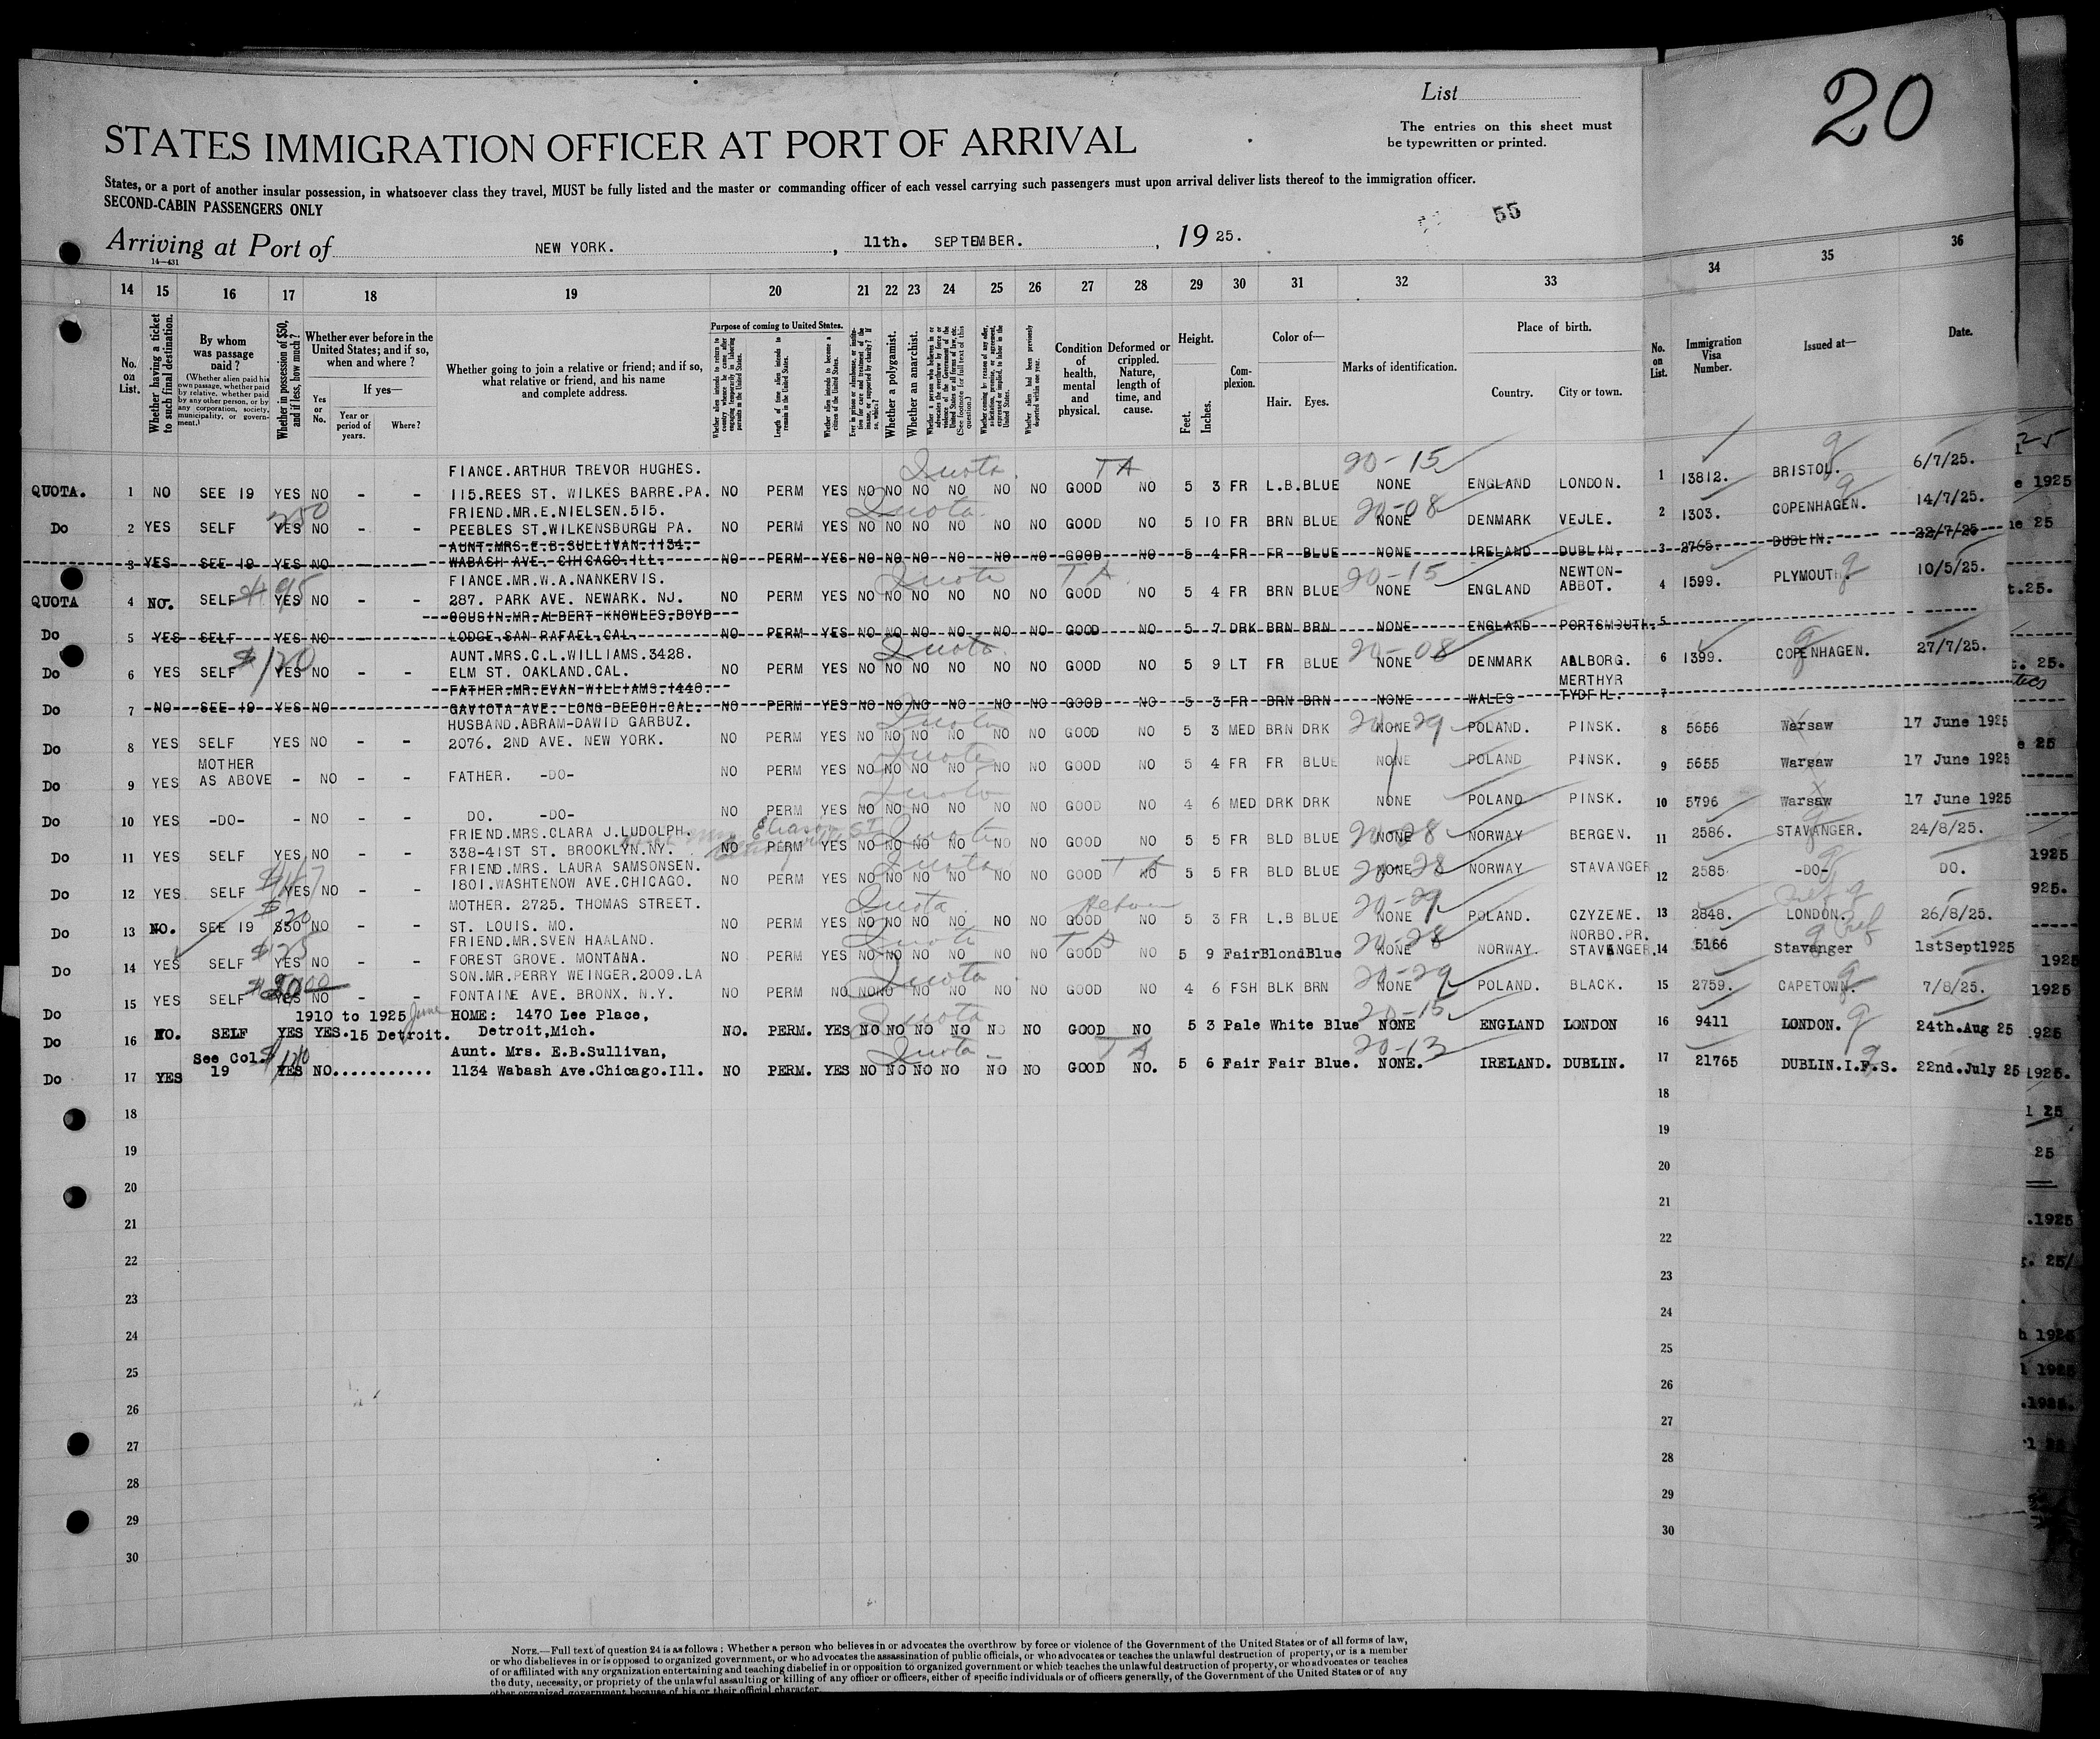 20
List
The entries on this sheet must
be typewritten or printed.
STATES IMMIGRATION OFFICER AT PORT OF ARRIVAL
States, or a port of another insular possession, in whatsoever class they travel, MUST be fully listed and the master or commanding officer of each vessel carrying such passengers must upon arrival deliver lists thereof to the immigration officer.
SECOND-CABIN PASSENGERS ONLY
55
Arriving at Port of NEW YORK. , 11th. SEPTEMBER. , 19 25.
14—431
14 15 16 17 18 19 20 21 22 23 24 25 26 27 28 29 30 31 32 33 34 35 36
No. on List.
Whether having a ticket to such final destination.
By whom was passage paid?
(Whether alien paid his own passage, whether paid by relative, whether paid by any other person, or by any corporation, society, municipality, or government.)
Whether in possession of $50, and if less, how much?
Whether ever before in the United States; and if so, when and where?
Yes or No.
If yes—
Year or period of years.
Where?
Whether going to join a relative or friend; and if so, what relative or friend, and his name and complete address.
Purpose of coming to United States.
Whether alien intends to return to country whence he came after engaging temporarily in laboring pursuits in the United States.
Length of time alien intends to remain in the United States.
Whether alien intends to become a citizen of the United States.
Whether a polygamist.
Whether an anarchist.
Condition of health, mental and physical.
Deformed or crippled. Nature, length of time, and cause.
Height.
Feet. Inches.
Complexion.
Color of—
Hair. Eyes.
Marks of identification.
Place of birth.
Country. City or town.
No. on List.
Immigration Visa Number.
Issued at—
Date.
FIANCE.ARTHUR TREVOR HUGHES. Quota. TA 20-15
QUOTA. 1 NO SEE 19 YES NO - - 115.REES ST. WILKES BARRE.PA. NO PERM YES NO NO NO NO NO NO GOOD NO 5 3 FR L.B. BLUE NONE ENGLAND LONDON. 1 13812. BRISTOL. 6/7/25.
FRIEND.MR.E.NIELSEN.515. Quota. 20-08
Do 2 YES SELF 250 YES NO - - PEEBLES ST.WILKENSBURGH PA. NO PERM YES NO NO NO NO NO NO GOOD NO 5 10 FR BRN BLUE NONE DENMARK VEJLE. 2 1303. COPENHAGEN. 14/7/25.
AUNT.MRS.E.B.SULLIVAN.1134.
3 YES SEE 19 YES NO WABASH AVE. CHICAGO.ILL. NO PERM YES NO NO NO NO NO NO GOOD NO 5 4 FR FR BLUE NONE IRELAND DUBLIN. 3 2765. DUBLIN. 22/7/25
FIANCE.MR.W.A.NANKERVIS. Quota TA 20-15 NEWTON-
QUOTA 4 NO. SELF $95 YES NO - - 287. PARK AVE. NEWARK. NJ. NO PERM YES NO NO NO NO NO NO GOOD NO 5 4 FR BRN BLUE NONE ENGLAND ABBOT. 4 1599. PLYMOUTH. 10/5/25.
COUSIN.MR.ALBERT KNOWLES.BOYD
Do 5 YES SELF YES NO - - LODGE.SAN RAFAEL.CAL. NO PERM YES NO NO NO NO NO NO GOOD NO 5 7 DRK BRN BRN NONE ENGLAND PORTSMOUTH. 5
AUNT.MRS.C.L.WILLIAMS.3428. Quota. 20-08
Do 6 YES SELF $120 YES NO - - ELM ST. OAKLAND.CAL. NO PERM YES NO NO NO NO NO NO GOOD NO 5 9 LT FR BLUE NONE DENMARK AALBORG. 6 1399. COPENHAGEN. 27/7/25.
FATHER.MR.EVAN WILLIAMS.1440. MERTHYR
Do 7 NO SEE 19 YES NO GAVIOTA AVE. LONG BEECH.CAL. NO PERM YES NO NO NO NO NO NO GOOD NO 5 3 FR BRN BRN NONE WALES TYDFIL. 7
HUSBAND.ABRAM-DAWID GARBUZ. Quota
Do 8 YES SELF YES NO - - 2076. 2ND AVE. NEW YORK. NO PERM YES NO NO NO NO NO NO GOOD NO 5 3 MED BRN DRK NONE 20-29 POLAND. PINSK. 8 5656 Warsaw 17 June 1925
MOTHER Quota
Do 9 YES AS ABOVE - NO - - FATHER. -DO- NO PERM YES NO NO NO NO NO NO GOOD NO 5 4 FR FR BLUE NONE POLAND PINSK. 9 5655 Warsaw 17 June 1925
Quota
Do 10 YES -DO- - NO - - DO. -DO- NO PERM YES NO NO NO NO NO NO GOOD NO 4 6 MED DRK DRK NONE POLAND PINSK. 10 5796 Warsaw 17 June 1925
FRIEND.MRS.CLARA J.LUDOLPH. Quota
Do 11 YES SELF YES NO - - 338-41ST ST. BROOKLYN.NY. NO PERM YES NO NO NO NO NO NO GOOD NO 5 5 FR BLD BLUE NONE 20-28 NORWAY BERGEN. 11 2586. STAVANGER. 24/8/25.
FRIEND.MRS. LAURA SAMSONSEN. Quota TA
Do 12 YES SELF YES NO - - 1801.WASHTENOW AVE.CHICAGO. NO PERM YES NO NO NO NO NO NO GOOD NO 5 5 FR BLD BLUE NONE 20-28 NORWAY STAVANGER 12 2585 -DO- DO.
MOTHER. 2725. THOMAS STREET. Quota. Hebrew 20-29
Do 13 NO. SEE 19 $20 $50 NO - - ST. LOUIS. MO. NO PERM YES NO NO NO NO NO NO GOOD NO 5 3 FR L.B BLUE NONE POLAND. CZYZENE. 13 2848. LONDON. 26/8/25.
FRIEND.MR.SVEN HAALAND. Quota TA 20-28 NORBO.PR.
Do 14 YES SELF $25 YES NO - - FOREST GROVE. MONTANA. NO PERM YES NO NO NO NO NO NO GOOD NO 5 9 Fair Blond Blue NONE NORWAY. STAVANGER. 14 5166 Stavanger 1stSept1925
SON.MR.PERRY WEINGER.2009.LA Quota 20-29
Do 15 YES SELF YES NO - - FONTAINE AVE. BRONX. N.Y. NO PERM NO NO NO NO NO NO NO GOOD NO 4 6 FSH BLK BRN NONE POLAND. BLACK. 15 2759. CAPETOWN. 7/8/25.
1910 to 1925 June HOME: 1470 Lee Place, Quota 20-15
Do 16 NO. SELF YES YES. 15 Detroit. Detroit,Mich. NO. PERM. YES NO NO NO NO NO NO GOOD NO 5 3 Pale White Blue NONE ENGLAND LONDON 16 9411 LONDON. 24th.Aug 25
See Col. $120 Aunt. Mrs. E.B.Sullivan, Quota- TA 20-13
Do 17 YES 19 YES NO........... 1134 Wabash Ave.Chicago.Ill. NO PERM. YES NO NO NO NO NO NO GOOD NO. 5 6 Fair Fair Blue. NONE. IRELAND. DUBLIN. 17 21765 DUBLIN.I.F.S. 22nd.July 25
18 18
19 19
20 20
21 21
22 22
23 23
24 24
25 25
26 26
27 27
28 28
29 29
30 30
NOTE.—Full text of question 24 is as follows: Whether a person who believes in or advocates the overthrow by force or violence of the Government of the United States or of all forms of law,
or who disbelieves in or is opposed to organized government, or who advocates the assassination of public officials, or who advocates or teaches the unlawful destruction of property, or is a member
of or affiliated with any organization entertaining and teaching disbelief in or opposition to organized government or which teaches the unlawful destruction of property, or who advocates or teaches
the duty, necessity, or propriety of the unlawful assaulting or killing of any officer or officers, either of specific individuals or of officers generally, of the Government of the United States or of any
other organized government because of his or their official character.